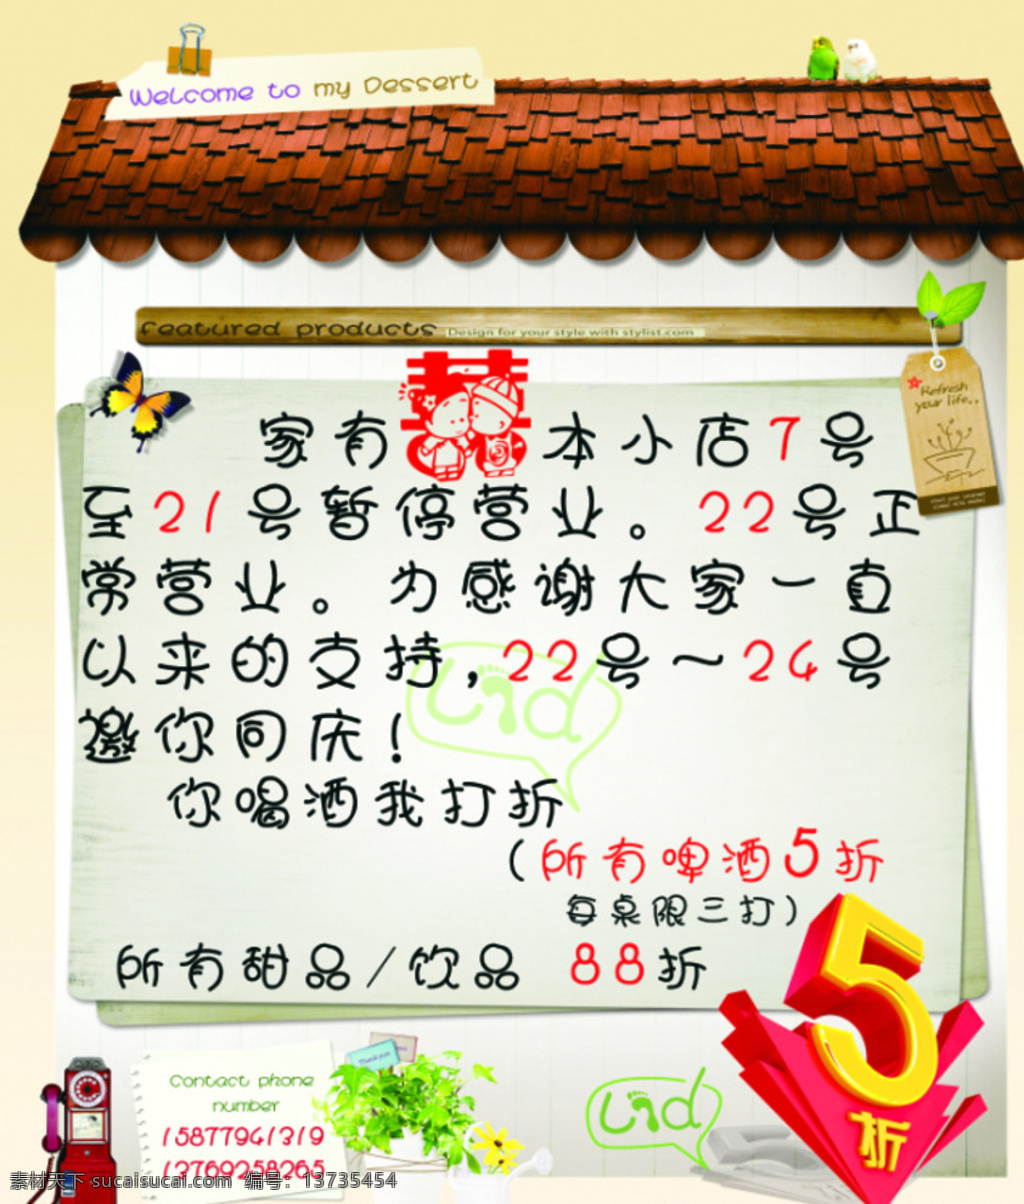 Welcome to my Dessert
featured products Design for your style with stylist.com
Refresh
your life..
家有囍本小店7号
至21号暂停营业。22号正
常营业。为感谢大家一直
以来的支持,22号～24号
邀你同庆!
你喝酒我打折
(所有啤酒5折
每桌限三打)
所有甜品/饮品 88折
5
折
Contact phone
number
15877941319
13769258265
素材天下 sucaisucai.com 编号：13735454